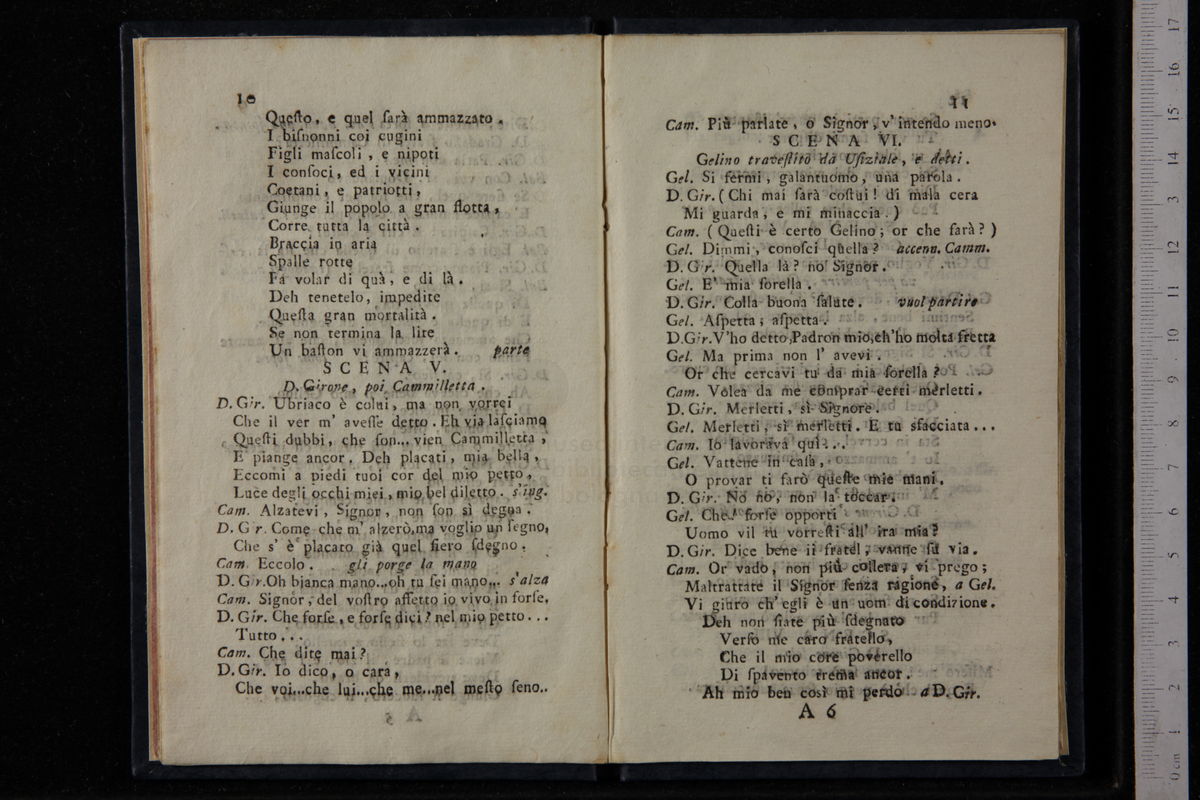 10
Queſto, e quel ſarà ammazzato.
I biſnonni coi cugini
Figli maſcoli, e nipoti
I conſoci, ed i vicini
Coetani, e patriotti,
Giunge il popolo a gran flotta,
Corre tutta la città.
Braccia in aria
Spalle rotte
Fa volar di quà, e di là.
Deh tenetelo, impedite
Queſta gran mortalità.
Se non termina la lite
Un baſton vi ammazzerà. parte
SCENA V.
D. Girone, poi Cammilletta.
D. Gir. Ubriaco è colui, ma non vorrei
Che il ver m' aveſſe detto. Eh via laſciamo
Queſti dubbi, che ſon... vien Cammilletta,
E piange ancor. Deh placati, mia bella,
Eccomi a piedi tuoi cor del mio petto,
Luce degli occhi miei, mio bel diletto. s'ing.
Cam. Alzatevi, Signor, non ſon sì degna.
D. G r. Come che m' alzerò, ma voglio un ſegno,
Che s' è placato già quel fiero ſdegno.
Cam. Eccolo. gli porge la mano
D. Gir. Oh bianca mano...oh tu ſei mano... s'alza
Cam. Signor, del voſtro affetto io vivo in forſe.
D. Gir. Che forſe, e forſe dici? nel mio petto...
Tutto...
Cam. Che dite mai?
D. Gir. Io dico, o cara,
Che voi...che lui...che me...nel meſto ſeno..
11
Cam. Più parlate, o Signor, v' intendo meno.
SCENA VI.
Gelino traveſtito da Ufiziale, e detti.
Gel. Si fermi, galantuomo, una parola.
D. Gir. (Chi mai ſarà coſtui! di mala cera
Mi guarda, e mi minaccia.)
Cam. (Queſti è certo Gelino; or che farà?)
Gel. Dimmi, conoſci quella? accenn. Camm.
D. Gir. Quella là? no Signor.
Gel. E' mia ſorella.
D. Gir. Colla buona ſalute. vuol partire
Gel. Aſpetta; aſpetta.
D. Gir. V'ho detto, Padron mio, ch'ho molta fretta
Gel. Ma prima non l' avevi.
Or che cercavi tu da mia ſorella?
Cam. Volea da me comprar certi merletti.
D. Gir. Merletti, sì Signore.
Gel. Merletti, sì merletti. E tu sfacciata...
Cam. Io lavorava quì...
Gel. Vattene in caſa,
O provar ti farò queſte mie mani.
D. Gir. No no, non la toccar.
Gel. Che! forſe opporti
Uomo vil tu vorreſti all' ira mia?
D. Gir. Dice bene il fratel, vanne ſu via.
Cam. Or vado, non più collera, vi prego;
Maltrattate il Signor ſenza ragione, a Gel.
Vi giuro ch' egli è un uom di condizione.
Deh non ſiate più ſdegnato
Verſo me caro fratello,
Che il mio core poverello
Di ſpavento trema ancor.
Ah mio ben così mi perdo a D. Gir.
A 6